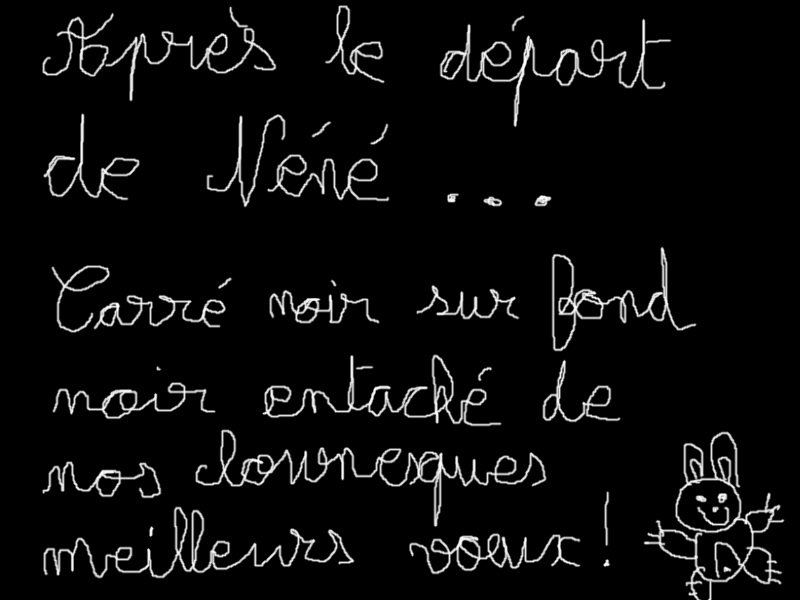 Après le départ
de Néné ...
Carré noir sur fond
noir entaché de
nos clownesques
meilleurs voeux !